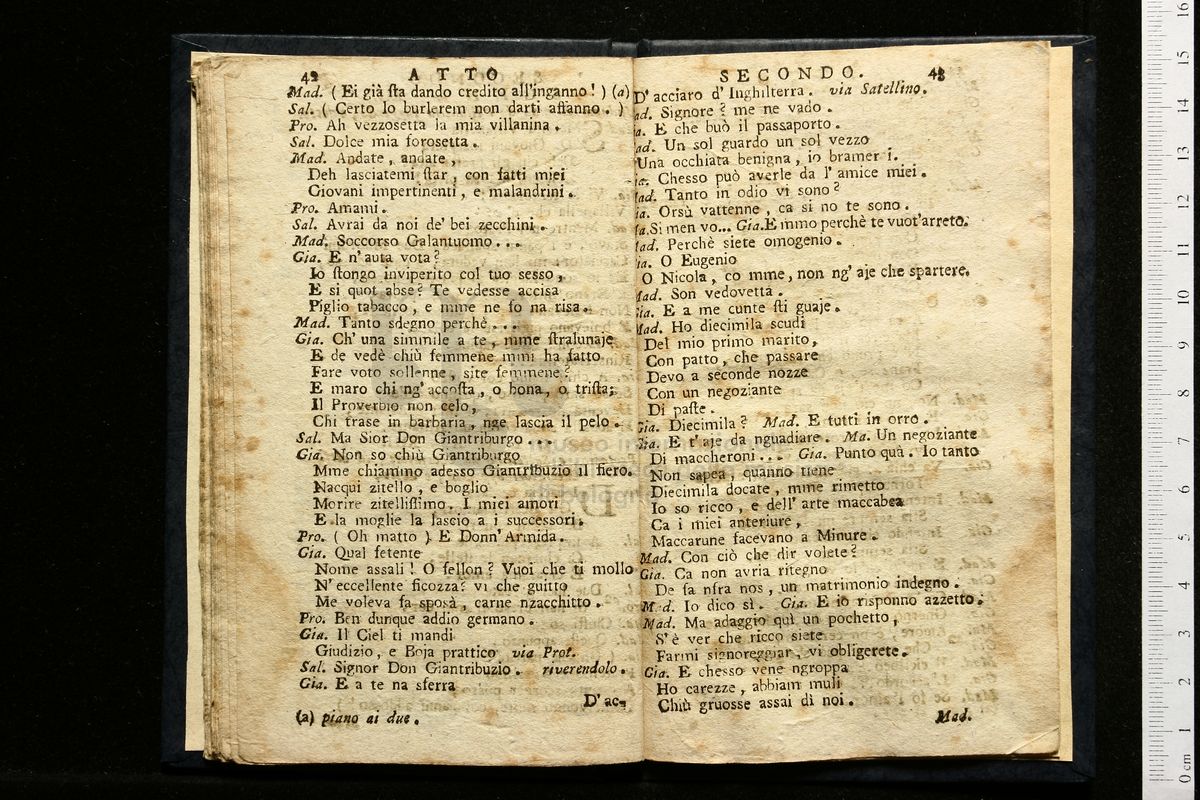 42 ATTO
Mad. ( Ei già sta dando credito all'inganno ! ) (a)
Sal. ( Certo lo burlerem non darti affanno . )
Pro. Ah vezzosetta la mia villanina .
Sal. Dolce mia forosetta .
Mad. Andate , andate ,
Deh lasciatemi star , con fatti miei
Giovani impertinenti , e malandrini .
Pro. Amami .
Sal. Avrai da noi de' bei zecchini .
Mad. Soccorso Galantuomo . . .
Gia. E n' auta vota ?
Io stongo inviperito col tuo sesso ,
E si quot abse ? Te vedesse accisa
Piglio tabacco , e mme ne fo na risa .
Mad. Tanto sdegno perchè . . .
Gia. Ch' una simmile a te , mme stralunaje
E de vedè chiù femmene mmi ha fatto
Fare voto sollenne , site femmene ?
E maro chi ng' accosta , o bona , o trista ;
Il Proverbio non celo ,
Chi trase in barbaria , nge lascia il pelo .
Sal. Ma Sior Don Giantriburgo . . .
Gia. Non so chiù Giantriburgo
Mme chiammo adesso Giantribuzio il fiero .
Nacqui zitello , e boglio
Morire zitellissimo . I miei amori
E la moglie la lascio a i successori .
Pro. ( Oh matto ) E Donn' Armida .
Gia. Qual fetente
Nome assali ! O fellon ? Vuoi che ti mollo
N' eccellente ficozza ? vi che guitto
Me voleva fa sposà , carne nzacchitto .
Pro. Ben dunque addio germano .
Gia. Il Ciel ti mandi
Giudizio , e Boja prattico via Prof.
Sal. Signor Don Giantribuzio . riverendolo .
Gia. E a te na sferra
D' ac-
(a) piano ai due .
SECONDO. 43
D' acciaro d' Inghilterra . via Satellino .
ad. Signore ? me ne vado .
a. E che buò il passaporto .
ad. Un sol guardo un sol vezzo
Una occhiata benigna , io bramerei .
ia. Chesso può averle da l' amice miei .
ad. Tanto in odio vi sono ?
ia. Orsù vattenne , ca si no te sono .
a. Si men vo... Gia. E mmo perchè te vuot' arreto .
ad. Perchè siete omogenio .
ia. O Eugenio
O Nicola , co mme , non ng' aje che spartere .
ad. Son vedovetta .
ia. E a me cunte sti guaje .
ad. Ho diecimila scudi
Del mio primo marito ,
Con patto , che passare
Devo a seconde nozze
Con un negoziante
Di paste .
Gia. Diecimila ? Mad. E tutti in orro .
Gia. E t' aje da nguadiare . Ma. Un negoziante
Di maccheroni . . . Gia. Punto quà . Io tanto
Non sapea , quanno tiene
Diecimila docate , mme rimetto
Io so ricco , e dell' arte maccabea
Ca i miei anteriure ,
Maccarune facevano a Minure .
Mad. Con ciò che dir volete ?
Gia. Ca non avria ritegno
De fa nfra nos , un matrimonio indegno .
Mad. Io dico sì . Gia. E io risponno azzetto .
Mad. Ma adaggio quì un pochetto ,
S' è ver che ricco siete
Farmi signoreggiar , vi obligerete .
Gia. E chesso vene ngroppa
Ho carezze , abbiam muli
Chiù gruosse assai di noi .
Mad.
0 cm 1 2 3 4 5 6 7 8 9 10 11 12 13 14 15 16